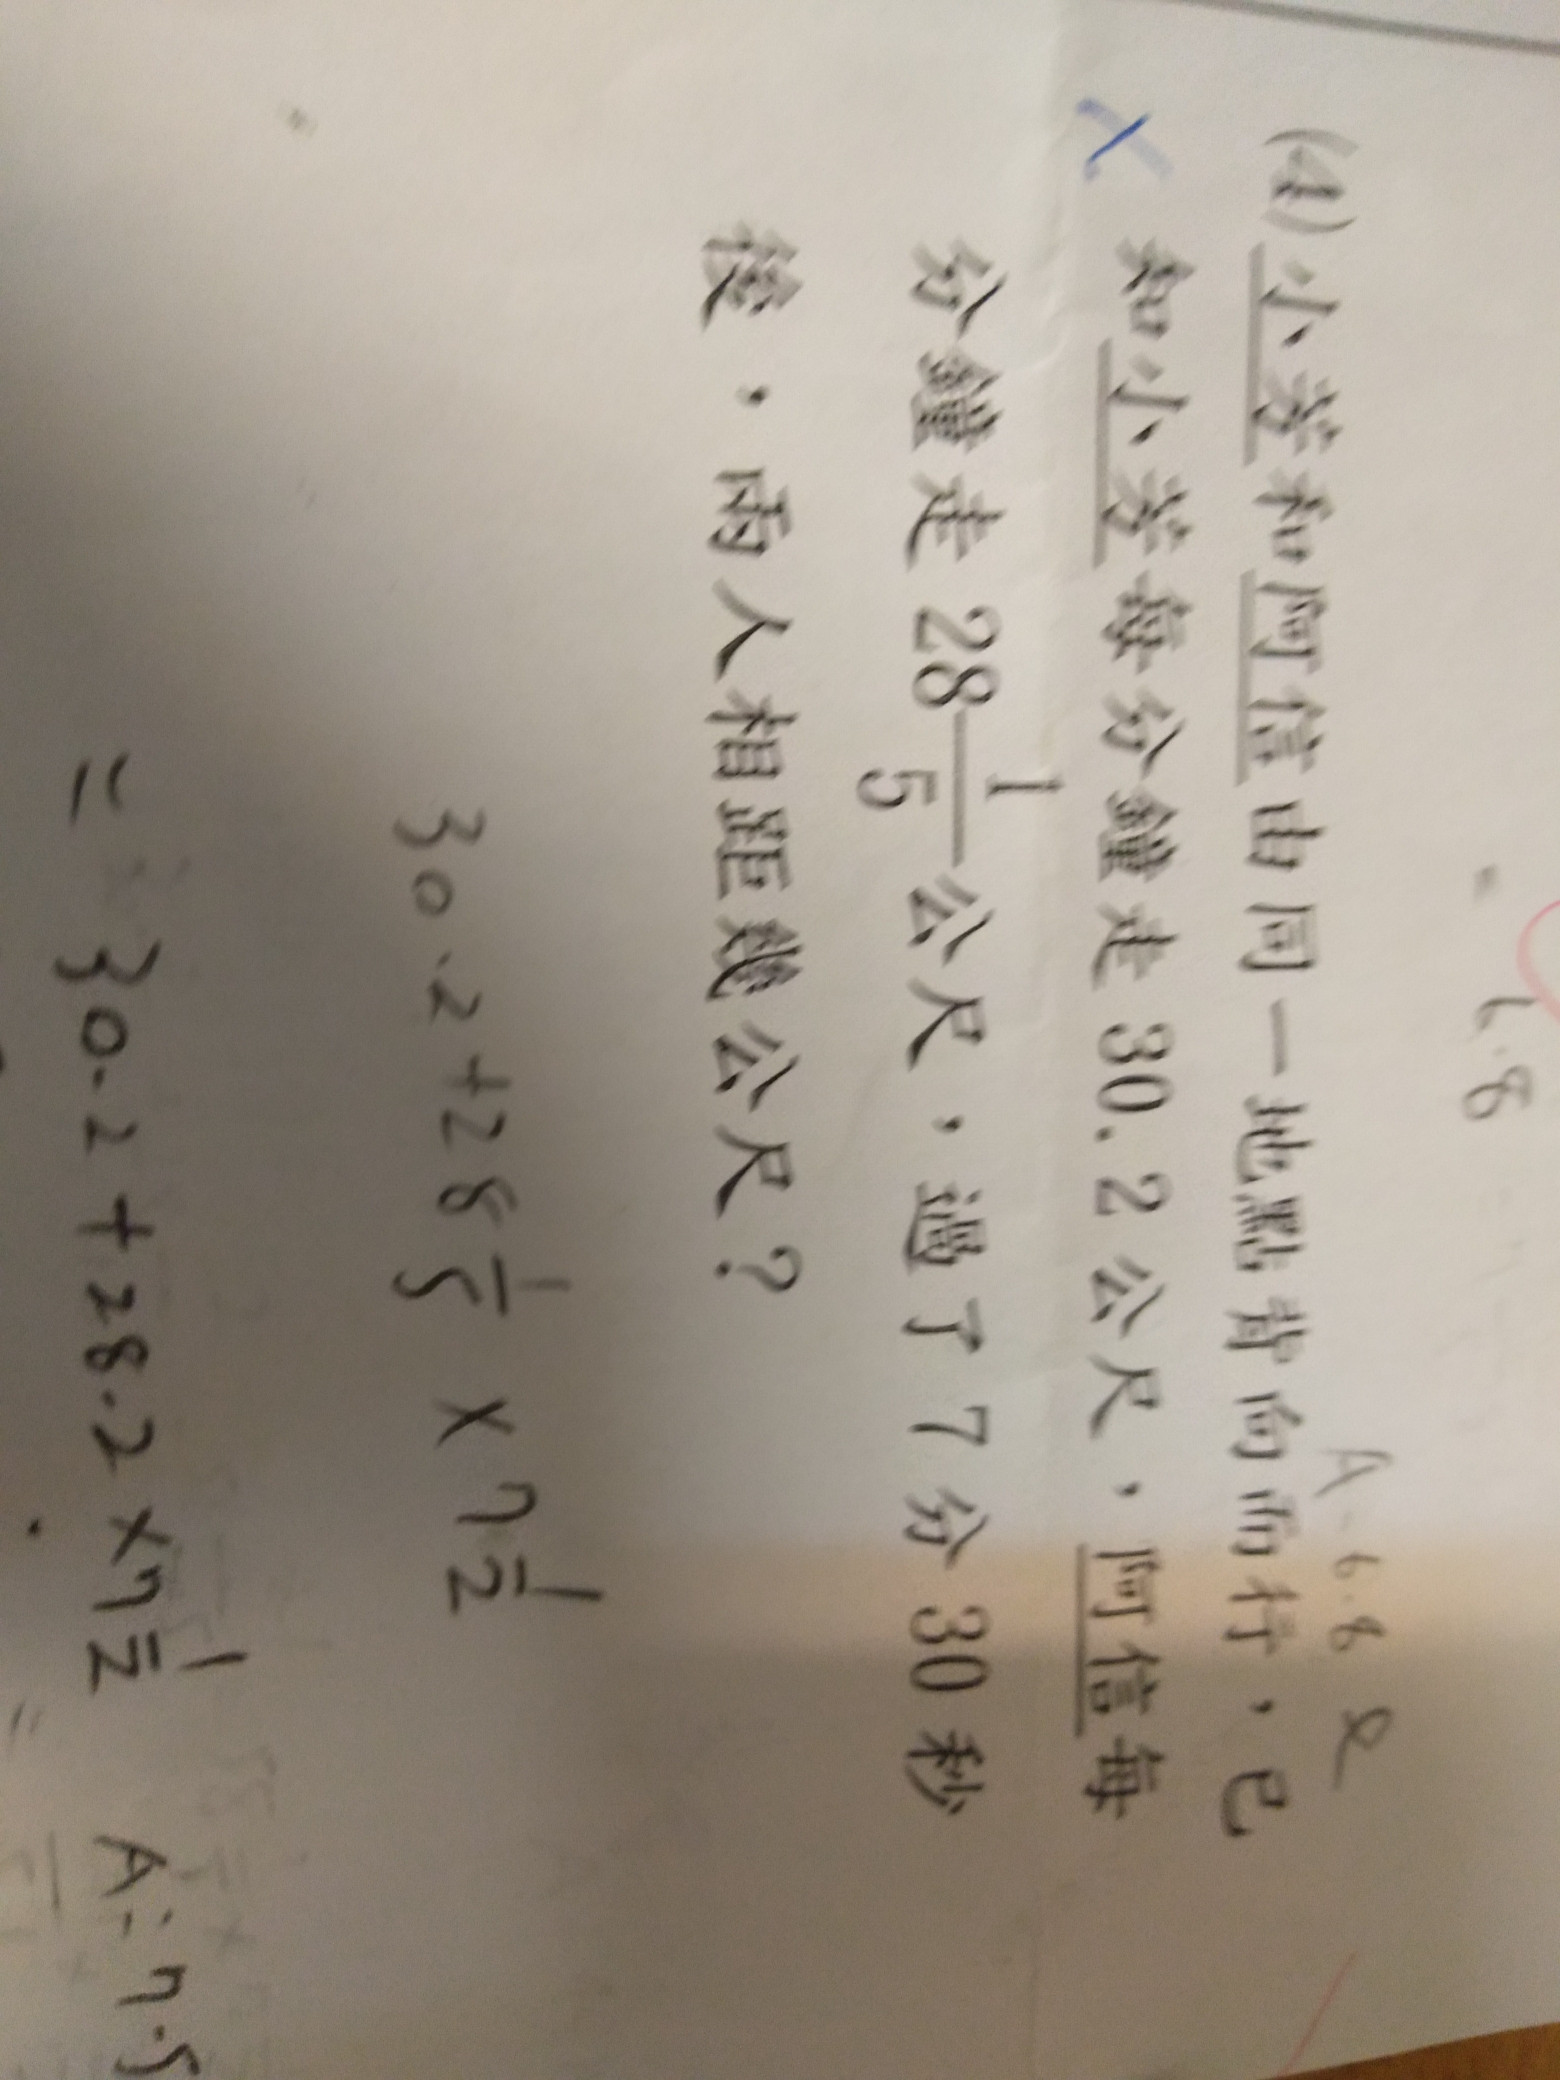 = 6.8
A=6.8
(4)小芳和阿信由同一地點背向而行，已
知小芳每分鐘走30.2公尺，阿信每
分鐘走28 1/5公尺，過了7分30秒
後，兩人相距幾公尺？
30.2+28 1/5 × 7 1/2
= 30.2+28.2×7 1/2
A：7.5